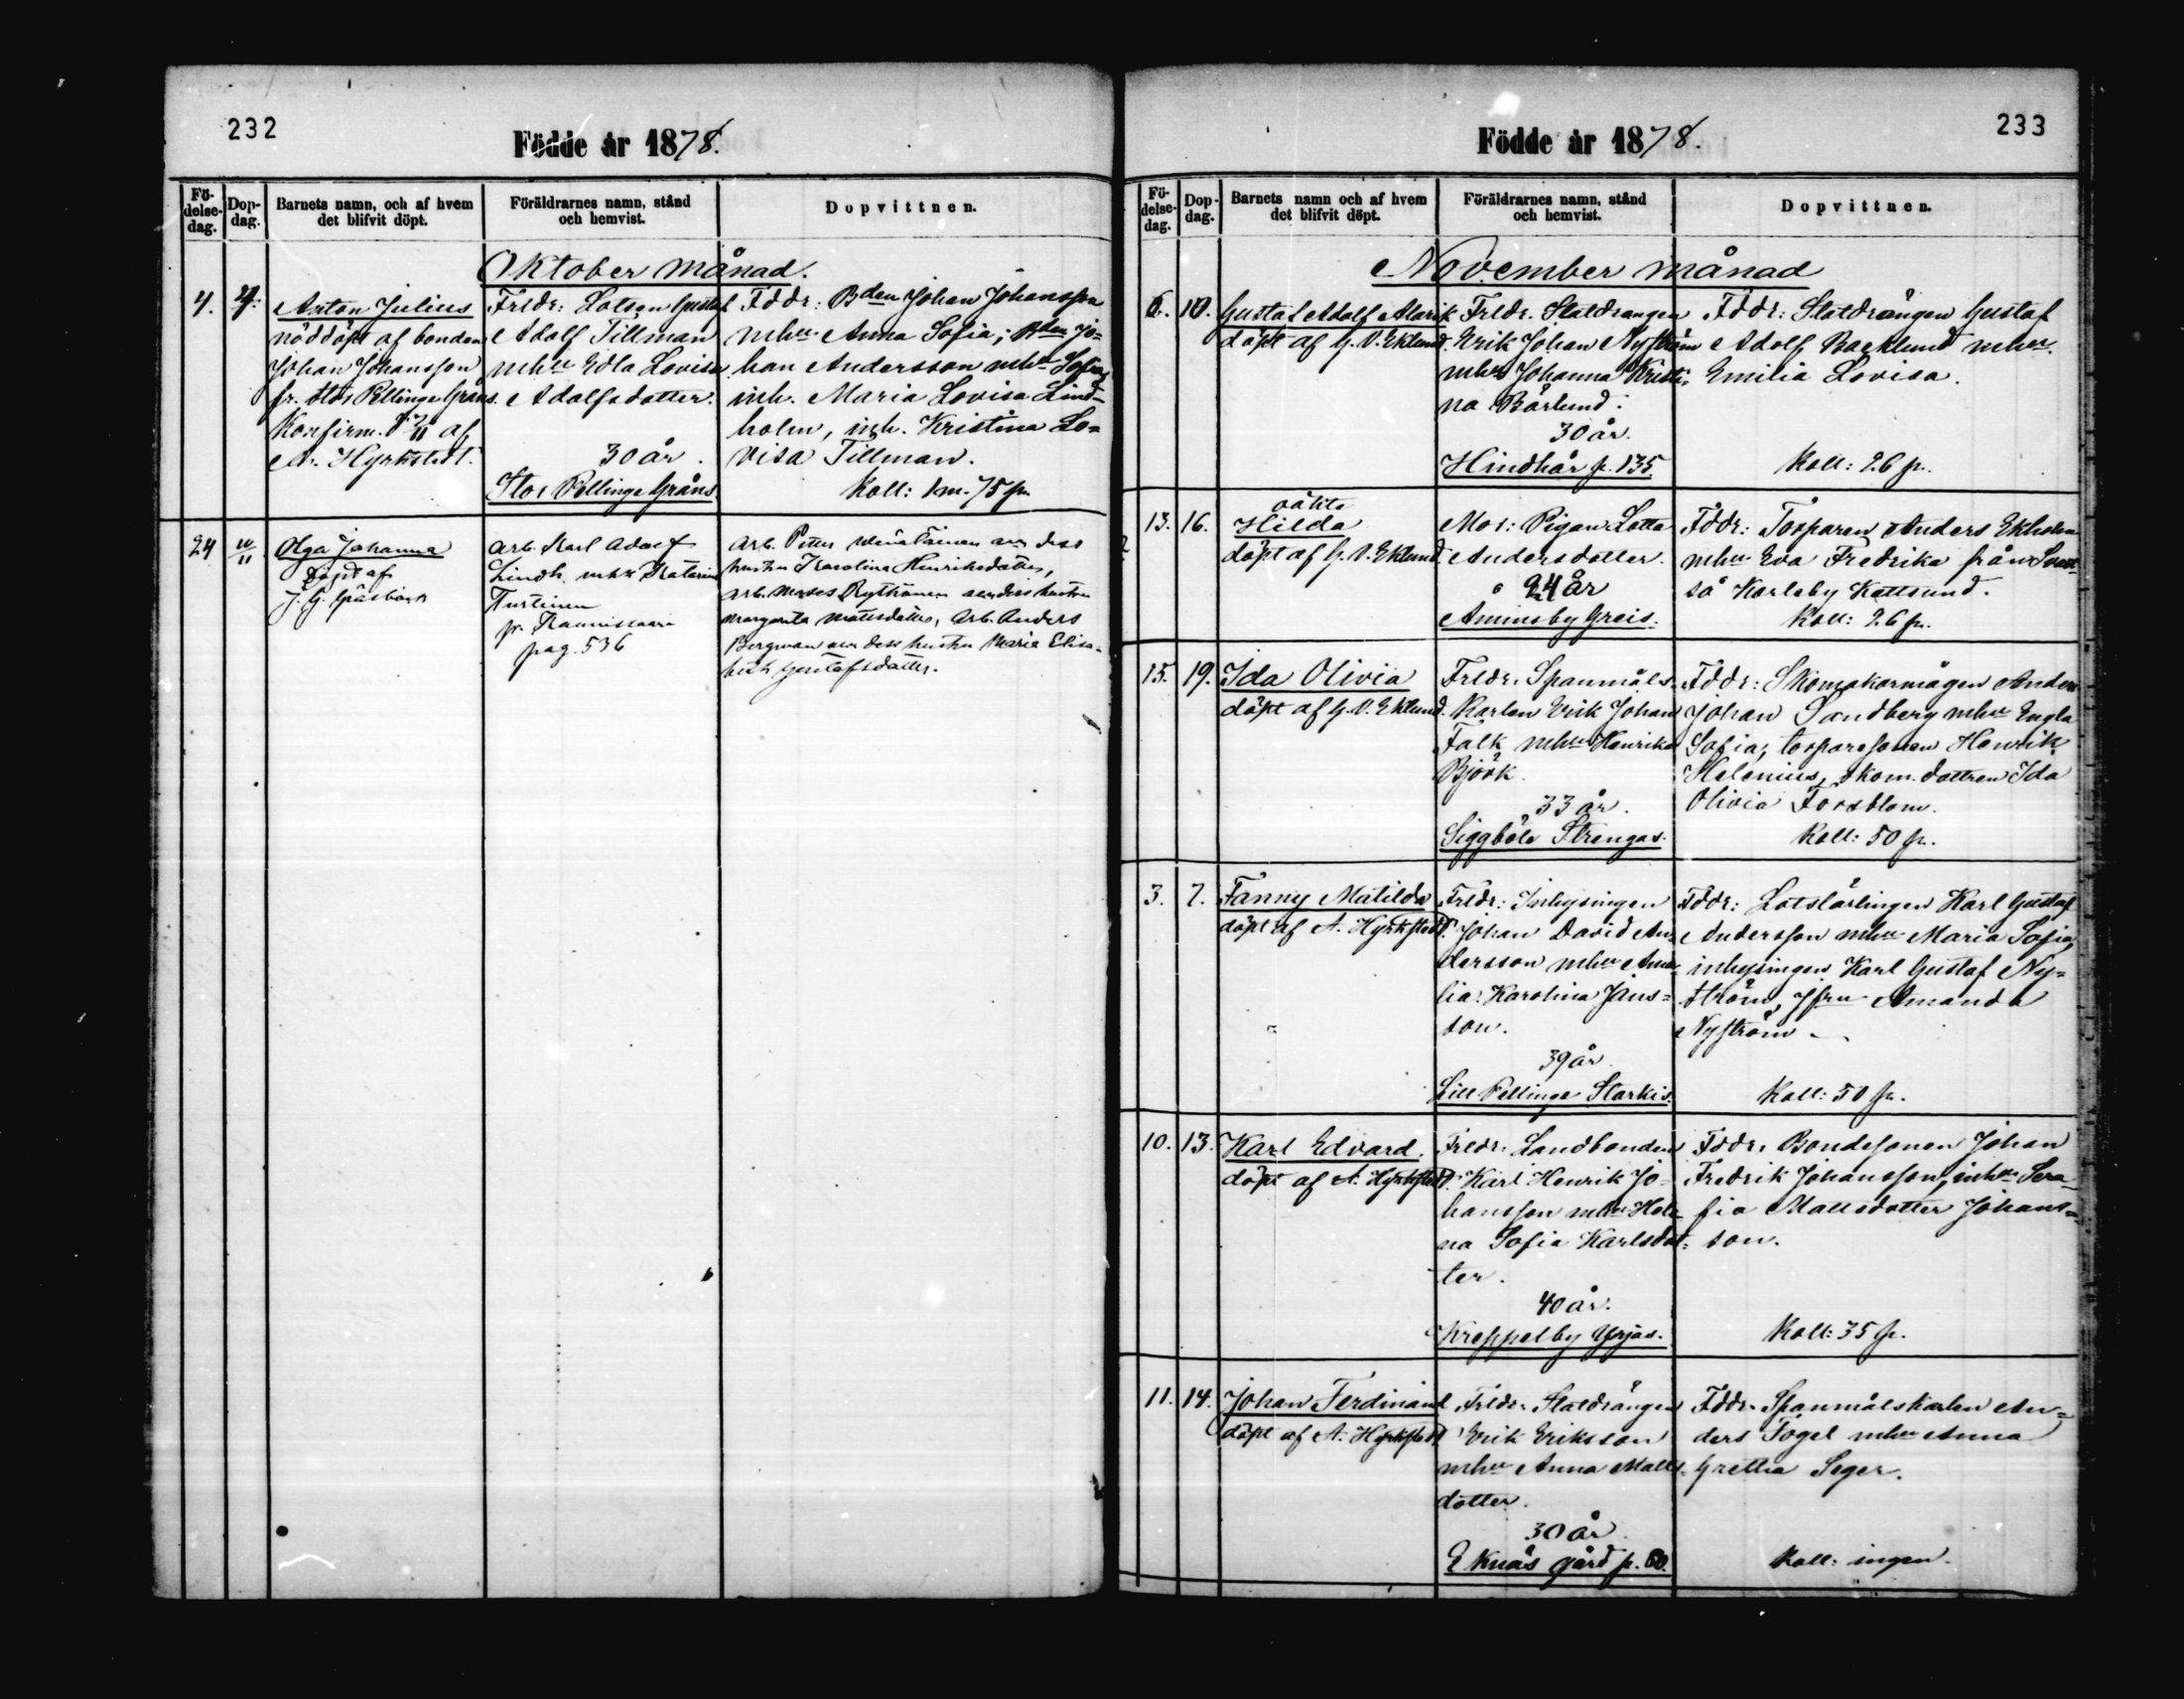 232
Födde år 1878.
Fö-
delse-
dag.
Dop-
dag.
Barnets namn, och af hvem
det blifvit döpt.
Föräldrarnes namn, stånd
och hemvist.
Dopvittnen.
Oktober månad.
4.
Anton Julius
nöddöpt af bonden
Johan Johansson
fr. Stor Pellinge Gräns.
Konfirm. af
A. Hyrkstedt.
Frldr: Lotsen Gustaf
Adolf Tillman
mhu Edla Lovisa
Adolfsdotter.
30 år.
Stor Pellinge Gräns
Fddr: Bden Johan Johansson
mhu Anna Sofia; Bden Jo=
han Andersson mhu Sofia,
inh. Maria Lovisa Lind-
holm, inh. Kristina Lo=
visa Tillman.
Koll: 1 m. 75 p.
24
Olga Johanna
döpt af
J. G.
Arb. Karl Adolf
Lindh mhu Katarina
Turtinen
pag. 536
Arb. Petter och dess
hustru Karolina Henriksdotter,
arb. Moses Rythönen och dess hustru
Margareta Mattsdotter, Arb. Anders
Bergman och dess hustru Maria Elisa-
beth Gustafsdotter.
233
Födde år 1878.
Fö-
delse-
dag.
Dop-
dag.
Barnets namn och af hvem
det blifvit döpt.
Föräldrarnes namn, stånd
och hemvist.
Dopvittnen.
November månad
6. 10.
Gustaf Adolf Alarik
döpt af G. V. Eklund.
Frldr. Statdrängen
Erik Johan Nyström
mhu Johanna Kristi-
na Bärlund.
30 år.
Hindhår p. 135
Fddr: Statdrängen Gustaf
Adolf Backlund mhu
Emilia Lovisa.
Koll: 26 p.
13. 16.
oäkta
Hilda
döpt af G. V. Eklund
Mor: Pigan Lotta
Andersdotter.
24 år
Aminsby Greis.
Fddr: Torparen Anders Ekholm
mhu Eva Fredrika från Svart-
så Karleby Kattsund.
Koll: 26 p.
15. 19.
Ida Olivia
döpt af G. V. Eklund.
Frldr: Spanmåls-
karlen Erik Johan
Falk mhu Henrika
Björk.
33 år.
Siggböle Strengas.
Fddr: Skomakarmågen Anders
Johan Sandberg mhu Engla
Sofia; torparesonen Henrik
Helenius, skom. dottren Ida
Olivia Forsblom.
Koll: 50 p.
3. 7.
Fanny Matilda
döpt af A. Hyrkstedt.
Frldr: Inhysingen
Johan David An-
dersson mhu Ama-
lia Karolina Jans=
son.
39 år
Lill Pellinge Starkis.
Fddr: Lotslärlingen Karl Gustaf
Andersson mhu Maria Sofia,
inhysingen Karl Gustaf Ny=
ström, Jfru Amanda
Nyström.
Koll: 50 p.
10. 13.
Karl Edvard.
döpt af A. Hyrkstedt.
Frldr: Landbonden
Karl Henrik Jo-
hansson mhu Hele-
na Sofia Karlsdot-
ter.
40 år.
Kreppelby Yrjas.
Fddr: Bondesonen Johan
Fredrik Johansson, inhu Sera-
fia Mattsdotter Johans=
son.
Koll: 35 p.
11. 14.
Johan Ferdinand
döpt af A. Hyrkstedt
Frldr: Statdrängen
Erik Eriksson
mhu Anna Matts-
dotter.
30 år.
Eknäs gård p. 60.
Fddr: Spanmålskarlen An=
ders Fogel mhu Anna
Gretha Seger.
Koll: ingen.